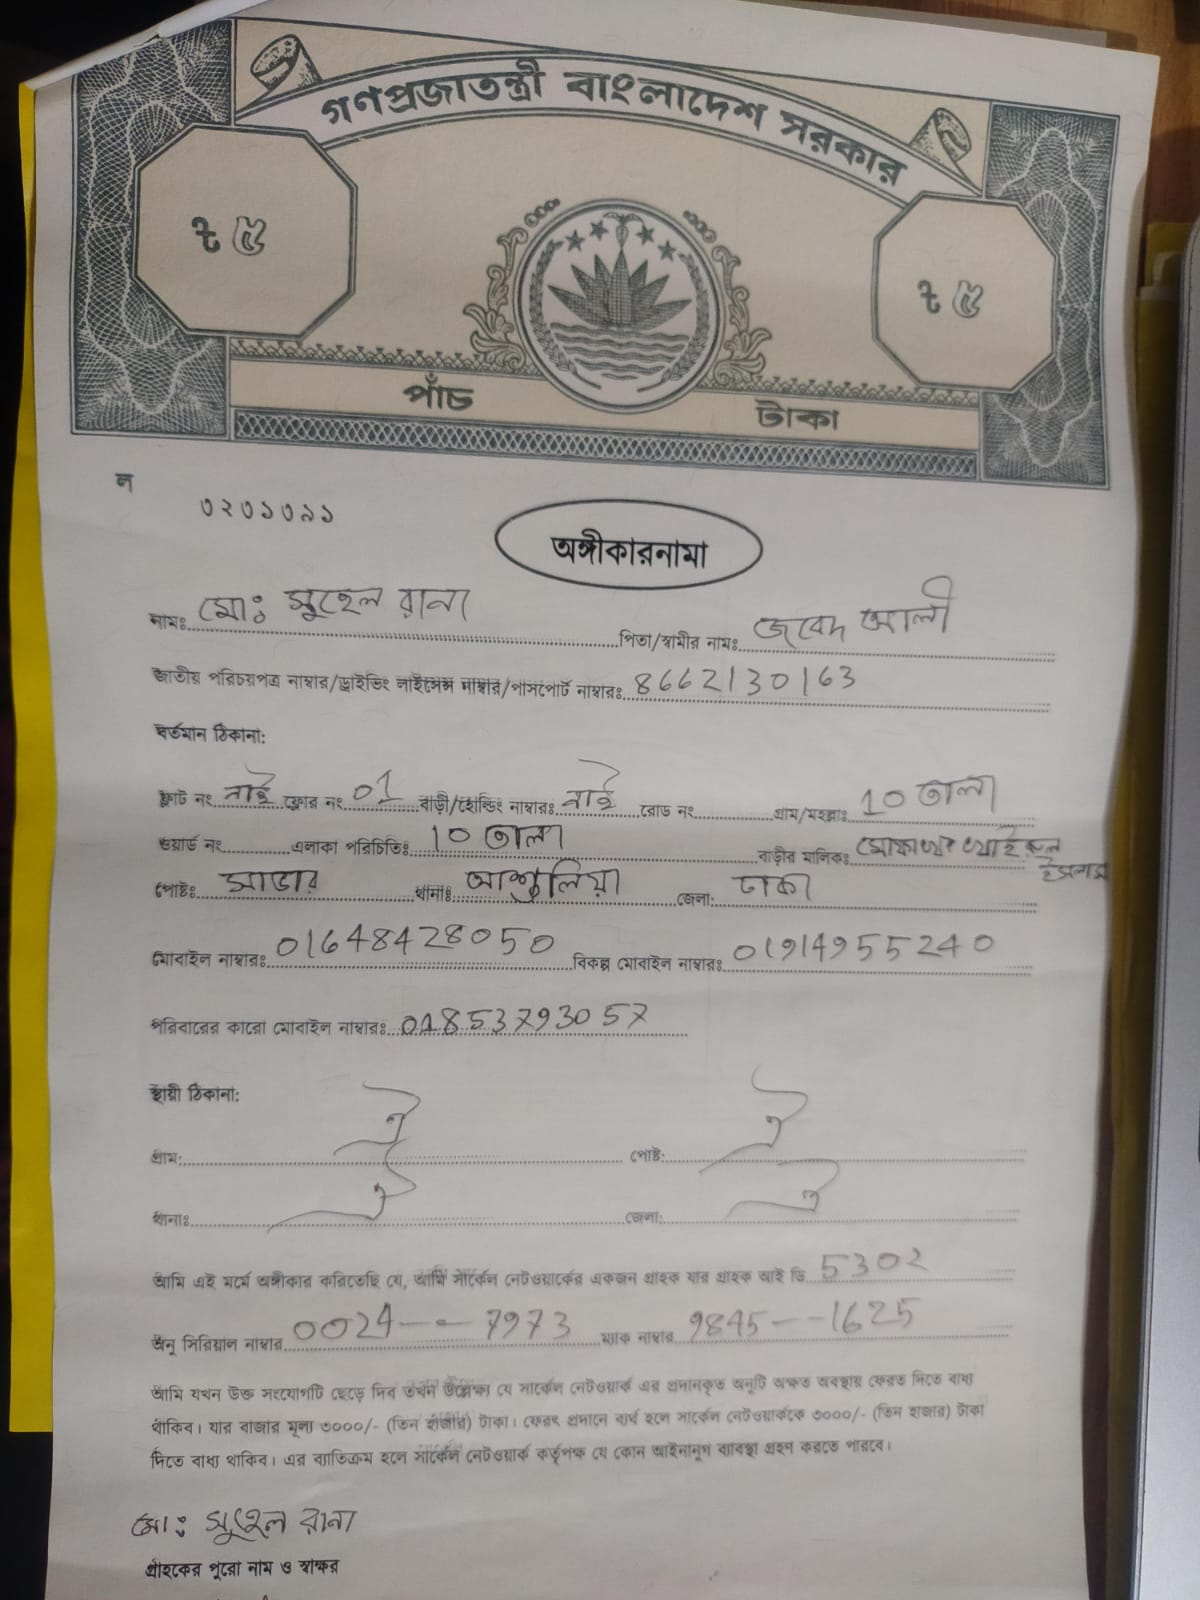 গণপ্রজাতন্ত্রী বাংলাদেশ সরকার
ট ৫ ট ৫
পাঁচ টাকা
ল ০২০১০৯১
অঙ্গীকারনামা
নামঃ মোঃ সুহেল রানা পিতা/স্বামীর নামঃ জবেদ আলী
জাতীয় পরিচয়পত্র নাম্বার/ড্রাইভিং লাইসেন্স নাম্বার/পাসপোর্ট নাম্বারঃ 8662130163
বর্তমান ঠিকানা:
ফ্লাট নং নাই ফ্লোর নং 01 বাড়ী/হোল্ডিং নাম্বারঃ নাই রোড নং গ্রাম/মহল্লাঃ 10 তালা
ওয়ার্ড নং এলাকা পরিচিতিঃ 10 তালা বাড়ীর মালিকঃ ইসলাম
পোষ্টঃ সাভার থানাঃ আশুলিয়া জেলা: ঢাকা
মোবাইল নাম্বারঃ 01648428050 বিকল্প মোবাইল নাম্বারঃ 01914955240
পরিবারের কারো মোবাইল নাম্বারঃ 01853793057
স্থায়ী ঠিকানা:
গ্রাম: ঐ পোষ্ট: ঐ
থানাঃ ঐ জেলা: ঐ
আমি এই মর্মে অঙ্গীকার করিতেছি যে, আমি সার্কেল নেটওয়ার্কের একজন গ্রাহক যার গ্রাহক আই ডি 5302
অনু সিরিয়াল নাম্বার 0024--7973 ম্যাক নাম্বার 9845--1625
আমি যখন উক্ত সংযোগটি ছেড়ে দিব তখন উল্লেক্ষ্য যে সার্কেল নেটওয়ার্ক এর প্রদানকৃত অনুটি অক্ষত অবস্থায় ফেরত দিতে বাধ্য
থাকিব। যার বাজার মূল্য ৩০০০/- (তিন হাজার) টাকা। ফেরৎ প্রদানে ব্যর্থ হলে সার্কেল নেটওয়ার্ককে ৩০০০/- (তিন হাজার) টাকা
দিতে বাধ্য থাকিব। এর ব্যতিক্রম হলে সার্কেল নেটওয়ার্ক কর্তৃপক্ষ যে কোন আইনানুগ ব্যাবস্থা গ্রহণ করতে পারবে।
মোঃ সুহেল রানা
গ্রাহকের পুরো নাম ও স্বাক্ষর